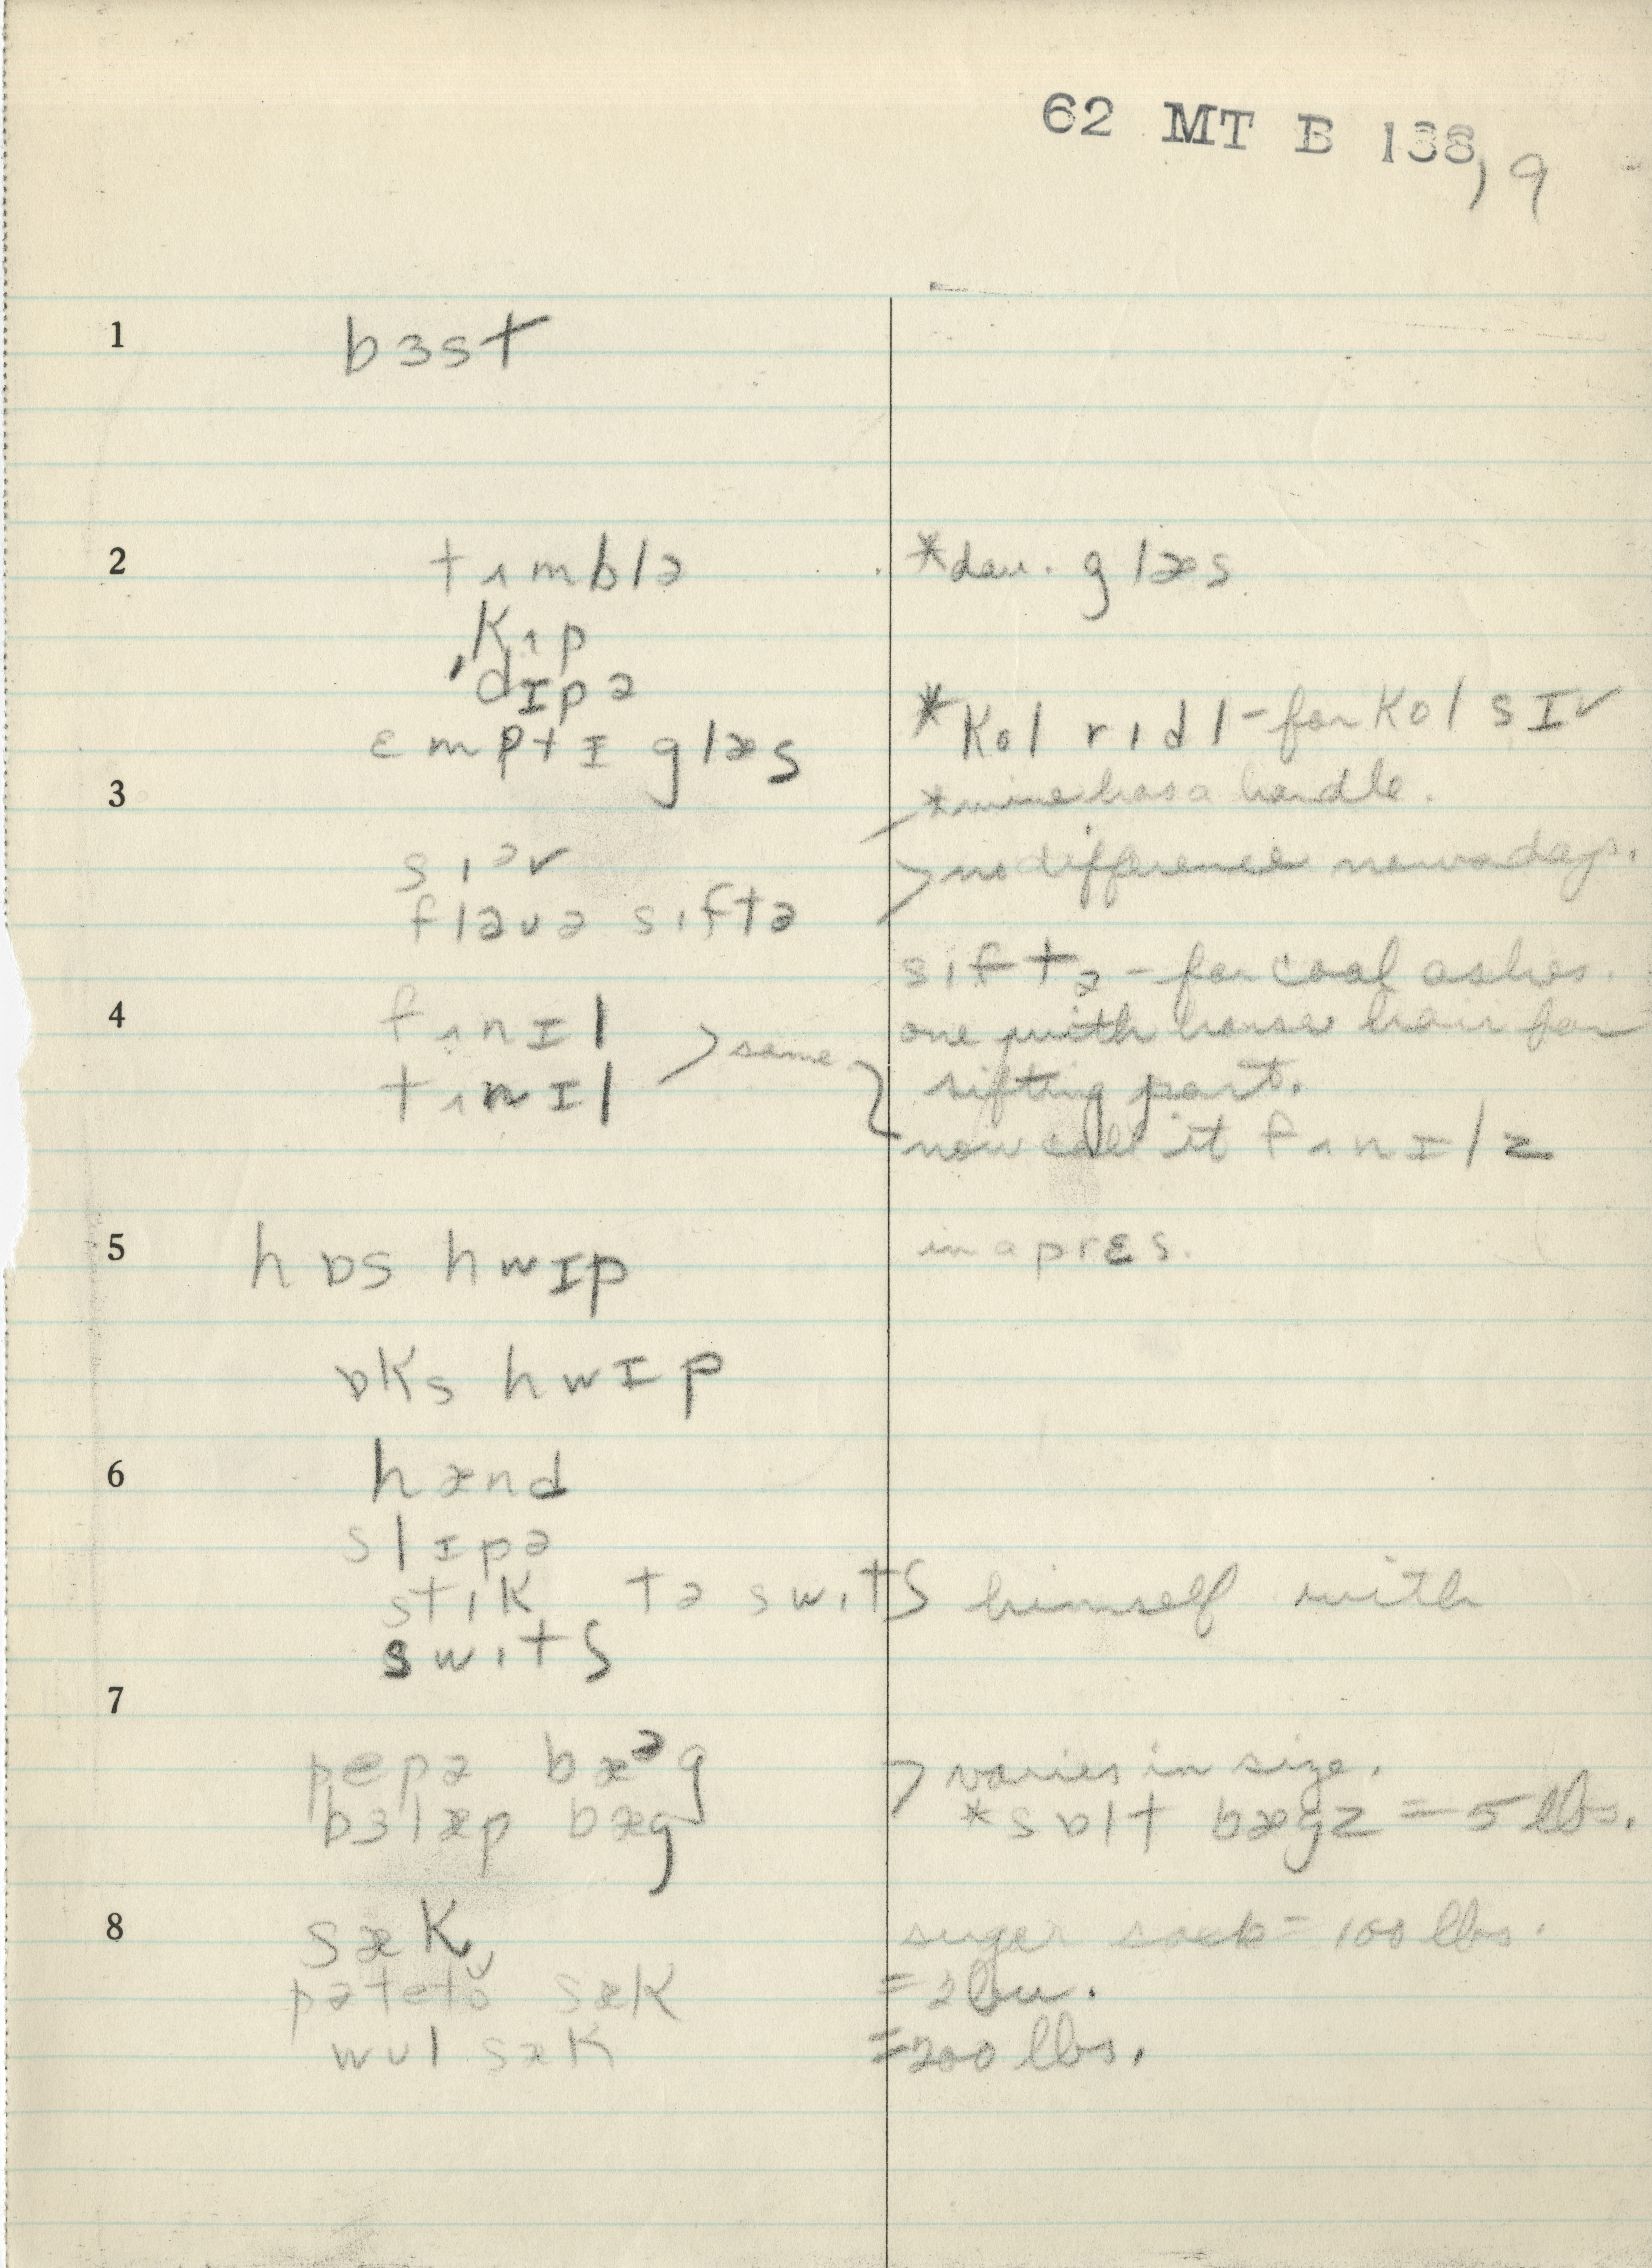 62 MT B 138, 9
1 bɜst
2 tʌmblə *dau. glæs
kʌp
ˈdɪpə
ɛmptɪ glæs *kol rıdl - for kol sɪv
3 *mine has a handle.
sıəv > no difference nowadays.
flauə sıftə
sıftə - for coal ashes.
4 fʌnɪl > same one with horse hair for
tʌnɪl sifting part.
now call it fʌnɪlz
5 hɒs hwɪp in a prɛs.
ɒks hwɪp
6 hænd
slɪpə
stık tə swıtʃ himself with
swıtʃ
7
pepə bæᵊg > varies in size.
bɜlæp bæg *sɒlt bægz = 5 lbs.
8 sæk sugar sack = 100 lbs.
pətetŏ sæk = 2 bu.
wʊl sæk = 200 lbs.